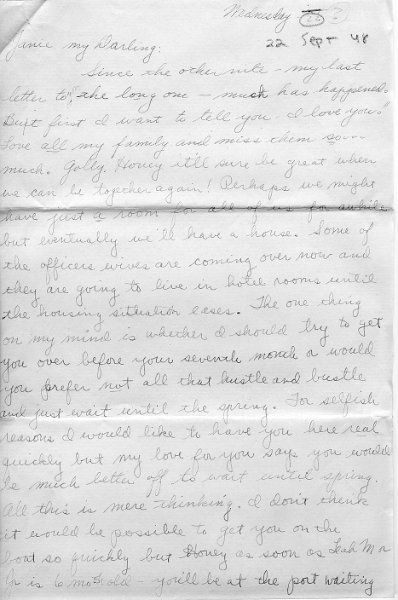 Wednesday 22 ?
22 Sept 48
Janie my Darling:
Since the other nite - my last
letter to U, the long one - much has happened.
But first I want to tell you - I love you."
Love all my family and miss them so---
much. Golly, Honey it'll sure be great when
we can be together again! Perhaps we might
have just a room for all of us for awhile
but eventually we'll have a house. Some of
the officers wives are coming over now and
they are going to live in hotel rooms until
the housing situation eases. The one thing
on my mind is whether I should try to get
you over before your seventh month or would
you prefer not all that hustle and bustle
and just wait until the spring. For selfish
reasons I would like to have you here real
quickly but my love for you says you would
be much better off to wait until spring.
All this is mere thinking. I don't think
it would be possible to get you on the
boat so quickly but Honey as soon as Leah M or
Jr is 6 mos old - you'll be at the port waiting